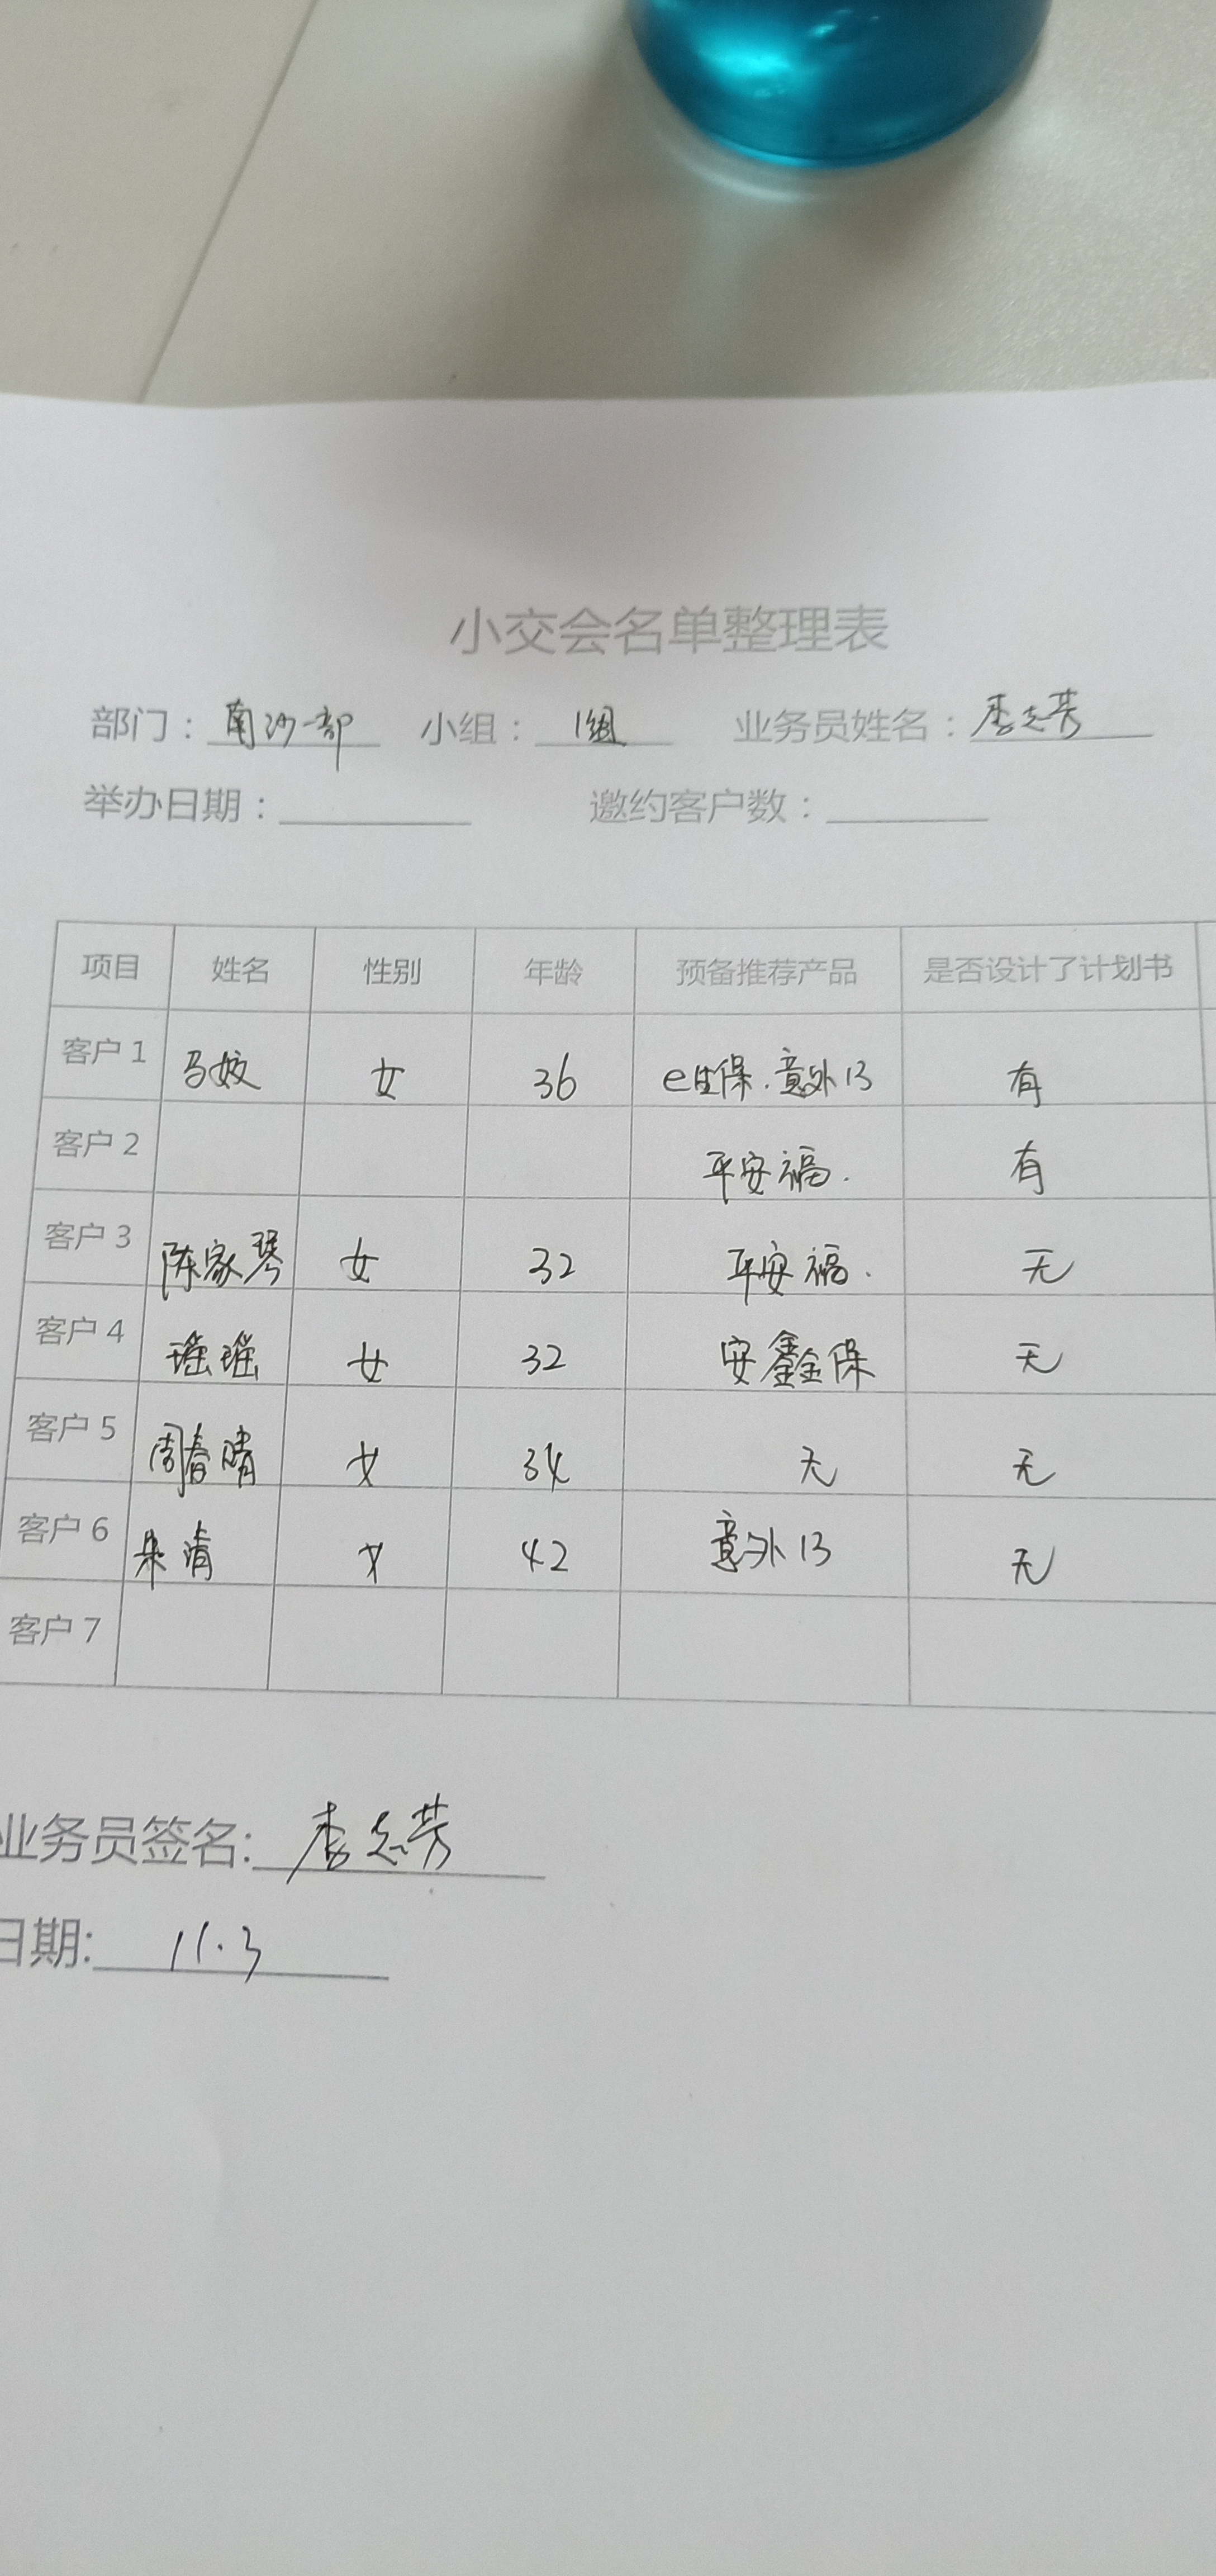 小交会名单整理表
部门：南沙一部 小组：1组 业务员姓名：李志芳
举办日期： 邀约客户数：
项目 姓名 性别 年龄 预备推荐产品 是否设计了计划书
客户1 马姣 女 36 e生保.意外13 有
客户2 平安福. 有
客户3 陈家琴 女 32 平安福. 无
客户4 瑶瑶 女 32 安鑫保 无
客户5 周春晴 女 34 无 无
客户6 朱清 女 42 意外13 无
客户7
业务员签名:李志芳
日期:11.3